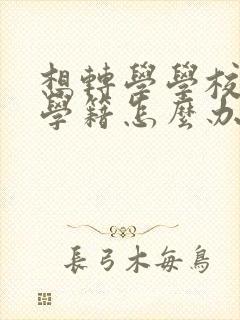 想轉學學校
學籍怎麼办
長弓木每鳥